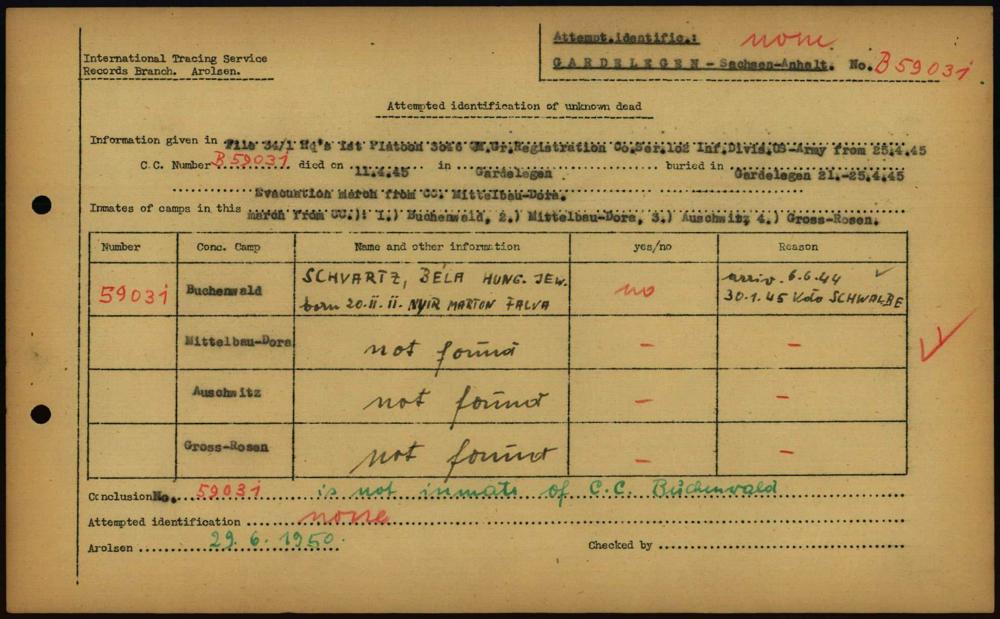 International Tracing Service
Records Branch. Arolsen.
Attempt.identific.: none
GARDELEGEN - Sachsen-Anhalt. No. B 59031
Attempted identification of unknown dead
Information given in File 34/1 Hq's 1st Platoon 3046 QM.Gr.Registration Co.Ser.102 Inf.Divis.US-Army from 25.4.45
C.C. Number B 59031 died on 11.4.45 in Gardelegen buried in Gardelegen 21.-25.4.45
Evacuation march from CC. Mittelbau-Dora.
Inmates of camps in this march from CC.): 1.) Buchenwald, 2.) Mittelbau-Dora, 3.) Auschwitz 4.) Gross-Rosen.
Number Conc. Camp Name and other information yes/no Reason
59031 Buchenwald SCHVARTZ, BÉLA HUNG. JEW. no arriv. 6.6.44 ✓
born 20.II.II. NYIR MARTON FALVA 30.1.45 Kdo SCHWALBE
Mittelbau-Dora not found - -
Auschwitz not found - -
Gross-Rosen not found - -
Conclusion No. 59031 is not inmate of C.C. Buchenwald
Attempted identification none
Arolsen 29. 6. 1950.
Checked by